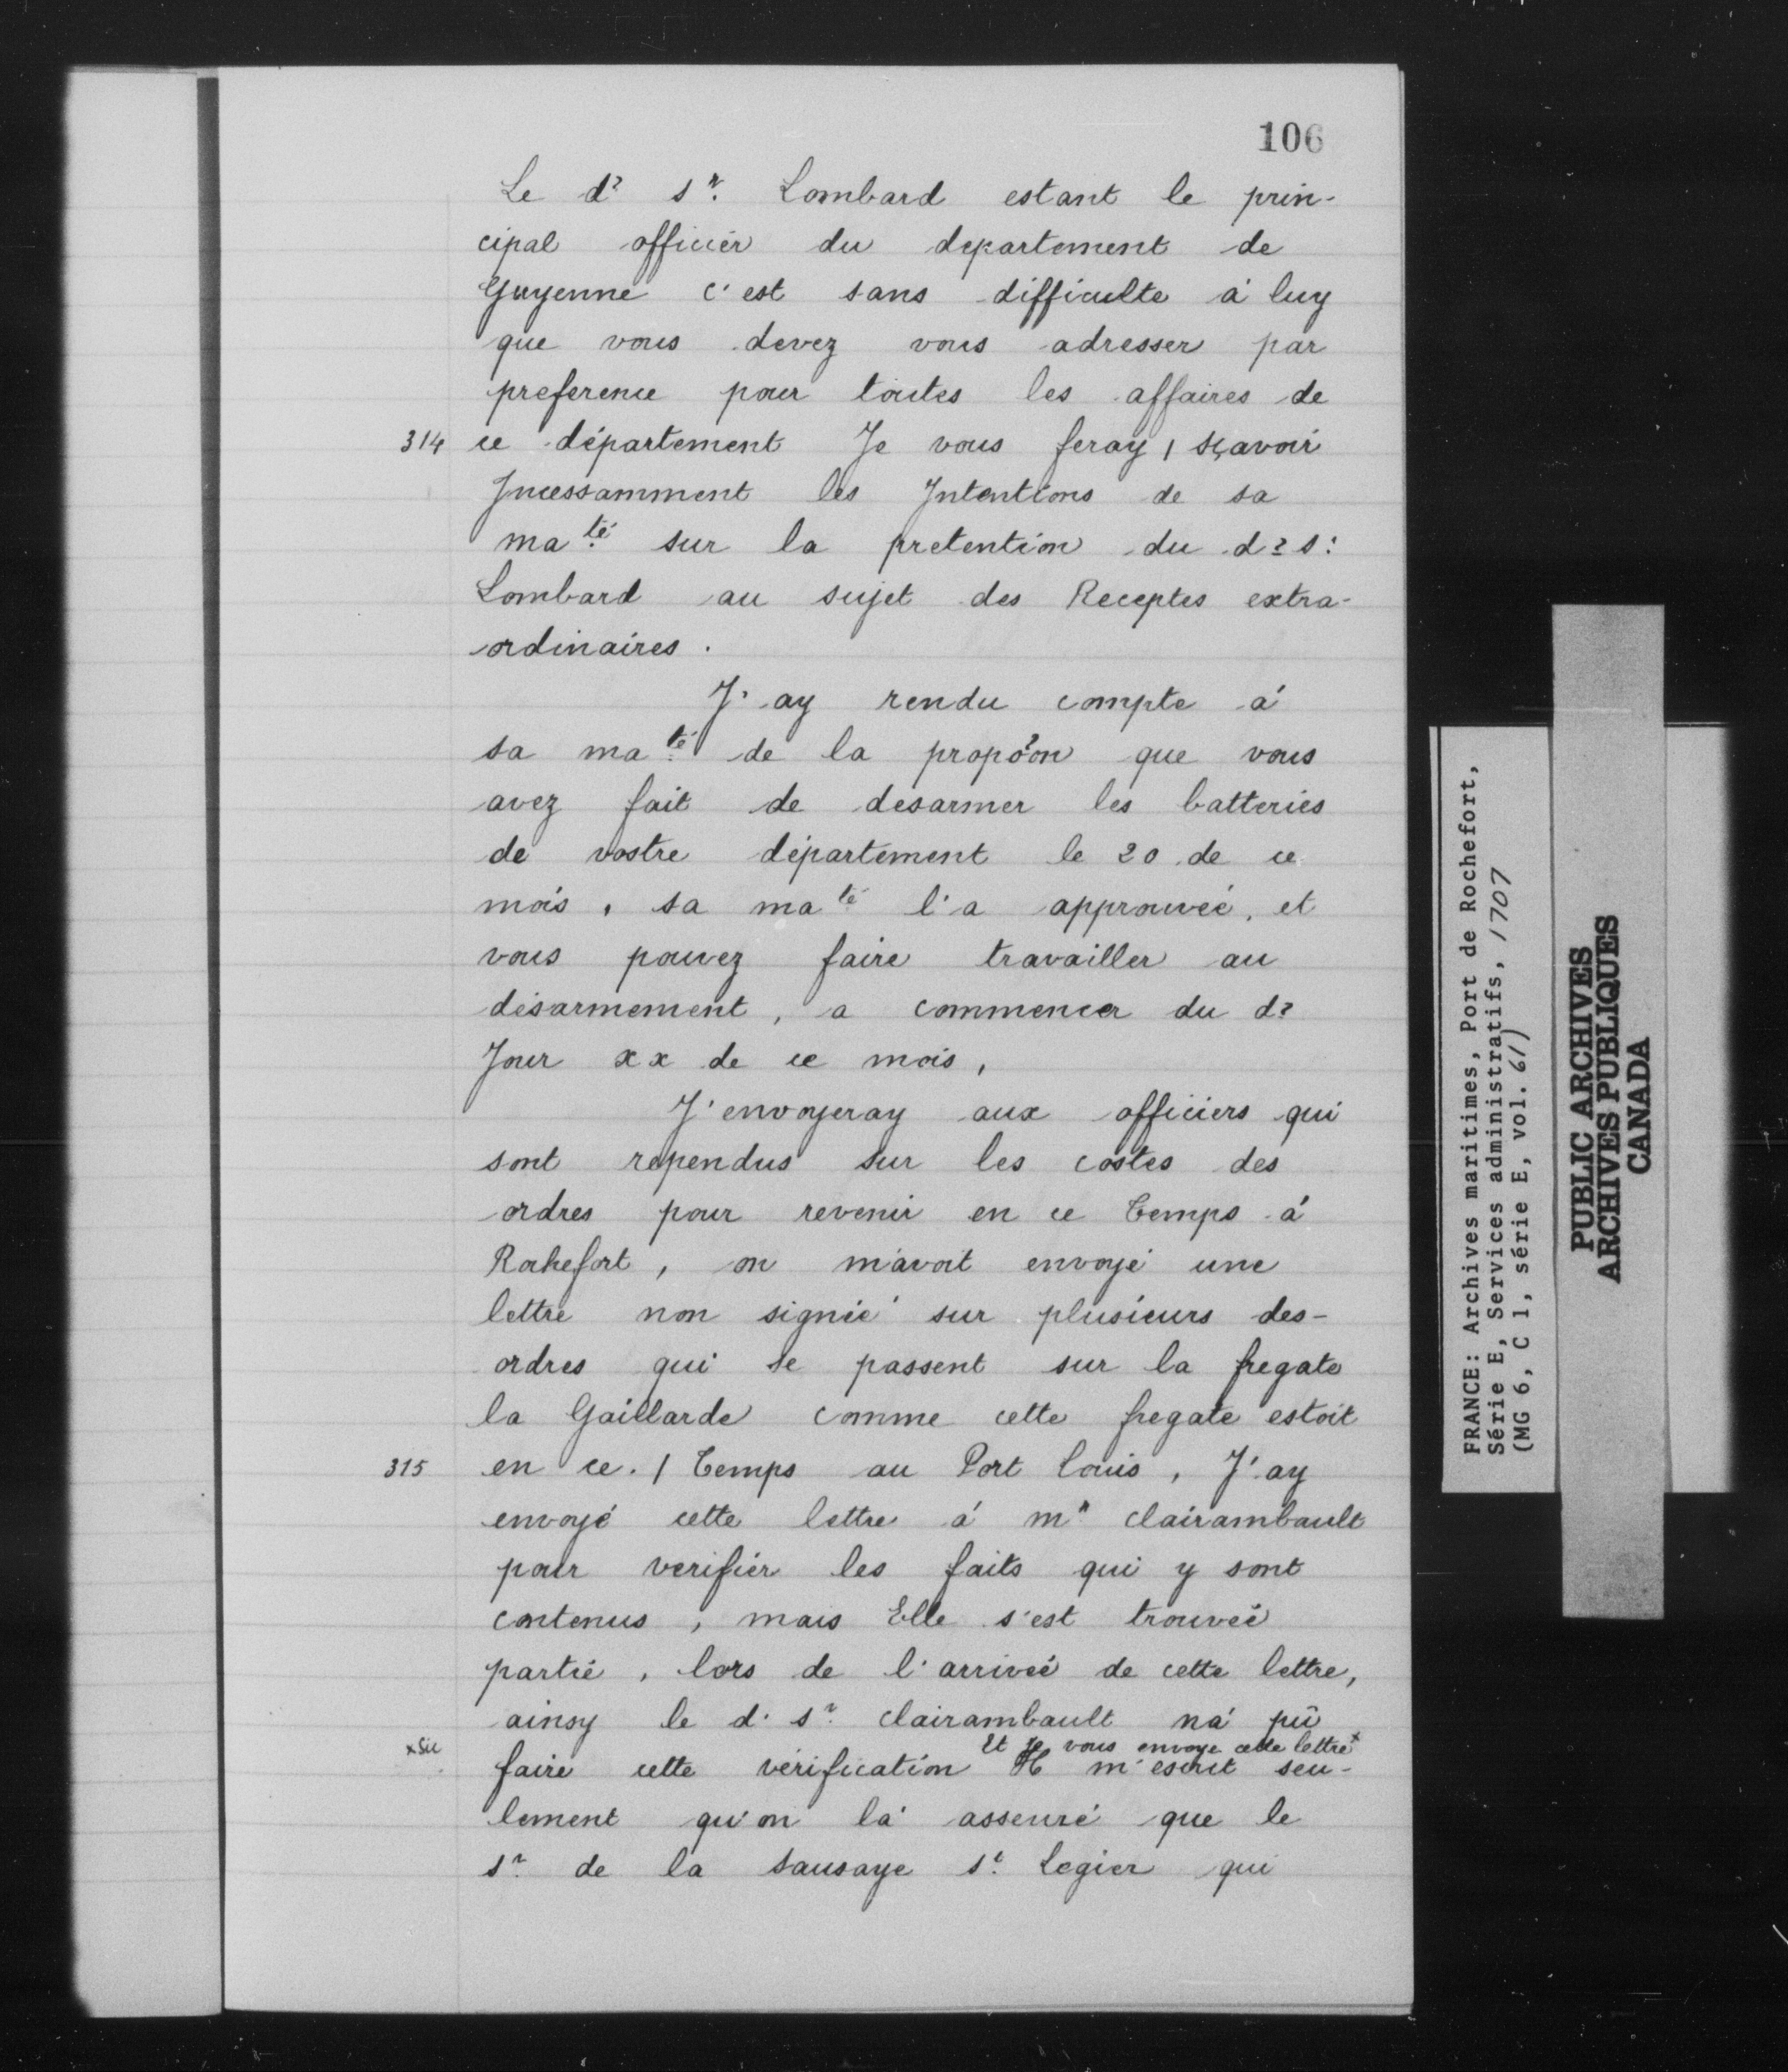 106
Le d? sr. Lombard estant le prin-
cipal officier du departement de
Guyenne c'est sans difficulte à luy
que vous devez vous adresser par
preference pour toutes les affaires de
314 ce département Je vous feray / sçavoir
Incessamment les Intentions de sa
ma.té sur la pretention du d? s:
Lombard au sujet des Receptes extra-
ordinaires.
J'ay rendu compte à
sa ma.té de la propo?on que vous
avez fait de desarmer les batteries
de vostre département le 20 de ce
mois, sa ma.té l'a approuvée, et
vous pouvez faire travailler au
désarmement, a commencer du d?
Jour xx de ce mois,
J'envoyeray aux officiers qui
sont rependus sur les costes des
ordres pour revenir en ce Temps à
Rochefort, on m'avoit envoyé une
lettre non signée sur plusieurs des-
ordres qui se passent sur la fregate
la Gaillarde comme cette fregate estoit
315 en ce. / Temps au Port Louis, J'ay
envoyé cette lettre à mr clairambault
pour verifier les faits qui y sont
contenus, mais Elle s'est trouvée
partie, lors de l'arrivée de cette lettre,
ainsy le d. sr. clairambault na pû
xSic
Et Je vous envoye cette lettre x
faire cette vérification Il m'escrit seu-
lement qu'on la asseuré que le
sr de la sausaye st. Legier qui
FRANCE: Archives maritimes, Port de Rochefort,
Série E, Services administratifs, 1707
(MG 6, C 1, série E, vol. 61)
PUBLIC ARCHIVES
ARCHIVES PUBLIQUES
CANADA